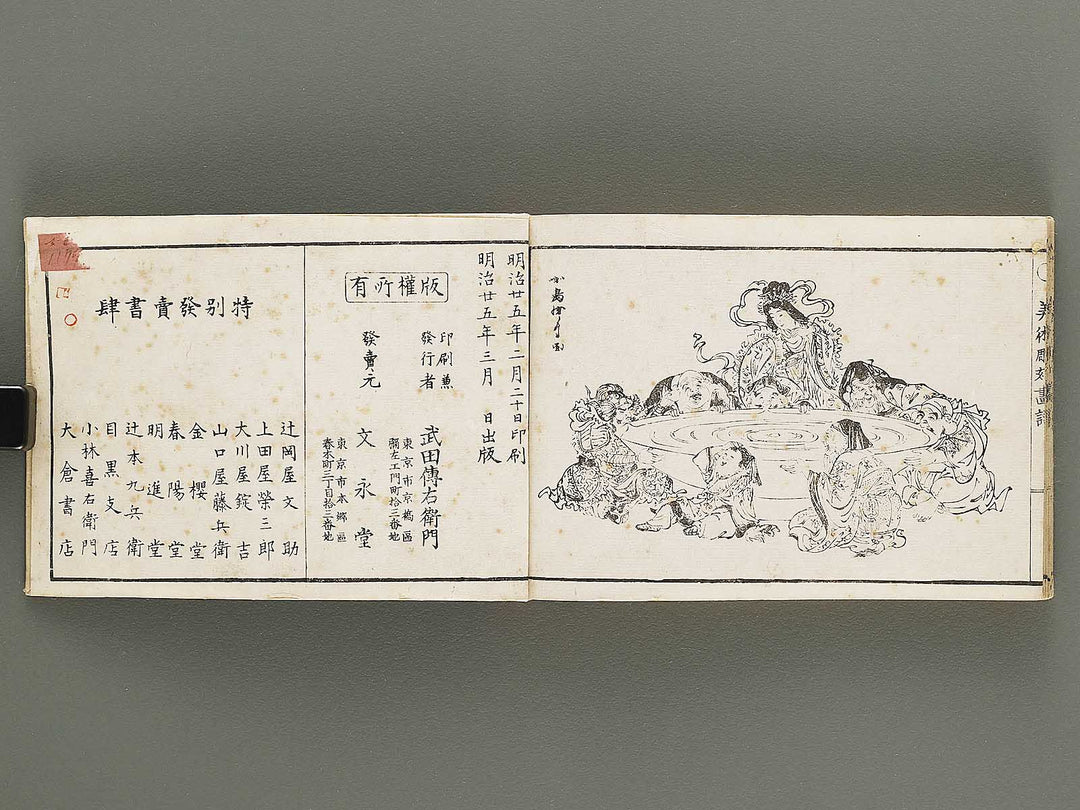 美術彫刻畫譜
明治廿五年二月二十日印刷
明治廿五年三月　日出版
版權所有
印刷兼
發行者
東京市京橋區
武田傳右衛門
發賣元
東京市本鄉區
春木町三丁目拾三番地
文永堂
特別發賣書肆
辻岡屋文助
上田屋榮三郎
大川屋錠吉
山口屋藤兵衛
金櫻堂
春陽堂
明進堂
辻本九兵衛
目黒支店
小林喜右衛門
大倉書店